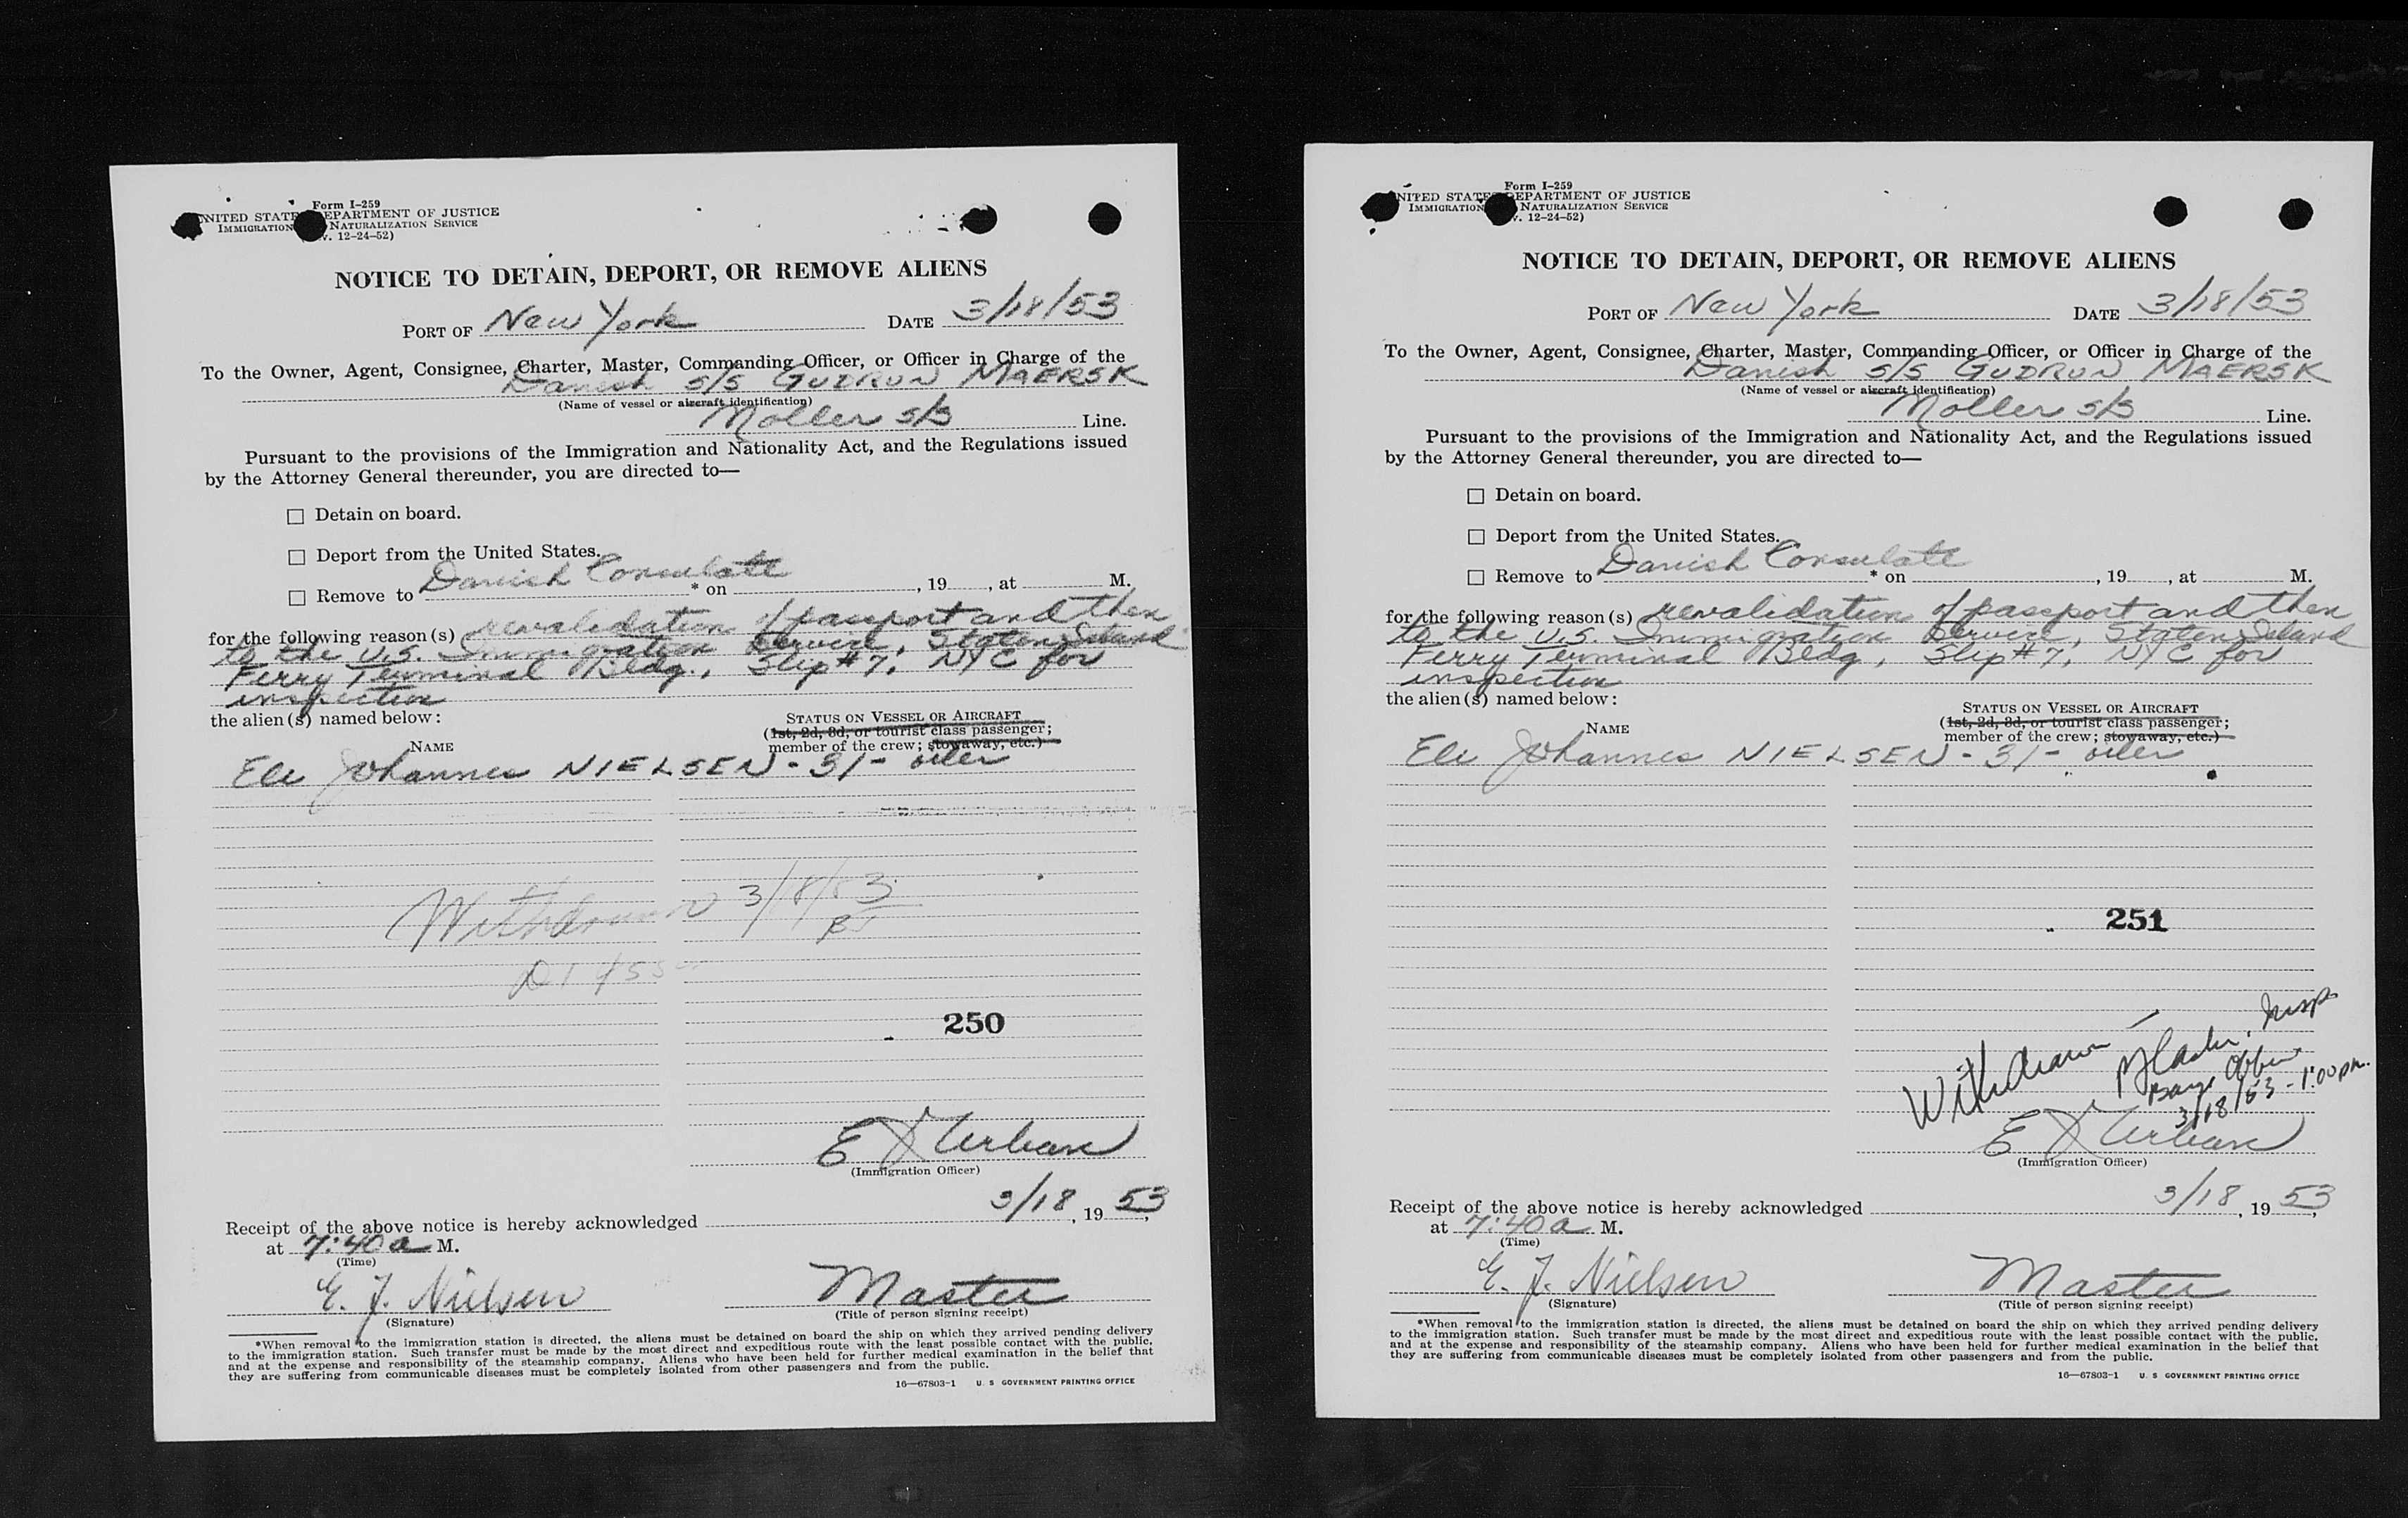 Form I-259
UNITED STATES DEPARTMENT OF JUSTICE
IMMIGRATION NATURALIZATION SERVICE
v. 12-24-52)
NOTICE TO DETAIN, DEPORT, OR REMOVE ALIENS
PORT OF New York DATE 3/18/53
To the Owner, Agent, Consignee, Charter, Master, Commanding Officer, or Officer in Charge of the
Danish S/S GUDRUN MAERSK
(Name of vessel or aircraft identification)
Moller S/S Line.
Pursuant to the provisions of the Immigration and Nationality Act, and the Regulations issued
by the Attorney General thereunder, you are directed to—
☐ Detain on board.
☐ Deport from the United States.
☐ Remove to Danish Consulate * on , 19 , at M.
for the following reason(s) revalidation of passport and then
to the U.S. Immigration Service, Staten Island
Ferry Terminal Bldg., Slip #7, NYC for
inspection
the alien(s) named below:
STATUS ON VESSEL OR AIRCRAFT
(1st, 2d, 3d, or tourist class passenger;
NAME member of the crew; stowaway, etc.)
Eli Johannes NIELSEN - 31 - oiler
Withdrawn 3/18/53
250
E Urban
(Immigration Officer)
Receipt of the above notice is hereby acknowledged 3/18, 19 53,
at 7:40 a M.
(Time)
E. J. Nielsen Master
(Signature) (Title of person signing receipt)
*When removal to the immigration station is directed, the aliens must be detained on board the ship on which they arrived pending delivery
to the immigration station. Such transfer must be made by the most direct and expeditious route with the least possible contact with the public,
and at the expense and responsibility of the steamship company. Aliens who have been held for further medical examination in the belief that
they are suffering from communicable diseases must be completely isolated from other passengers and from the public.
16—67803-1 U. S GOVERNMENT PRINTING OFFICE
Form I-259
UNITED STATES DEPARTMENT OF JUSTICE
IMMIGRATION NATURALIZATION SERVICE
v. 12-24-52)
NOTICE TO DETAIN, DEPORT, OR REMOVE ALIENS
PORT OF New York DATE 3/18/53
To the Owner, Agent, Consignee, Charter, Master, Commanding Officer, or Officer in Charge of the
Danish S/S GUDRUN MAERSK
(Name of vessel or aircraft identification)
Moller S/S Line.
Pursuant to the provisions of the Immigration and Nationality Act, and the Regulations issued
by the Attorney General thereunder, you are directed to—
☐ Detain on board.
☐ Deport from the United States.
☐ Remove to Danish Consulate * on , 19 , at M.
for the following reason(s) revalidation of passport and then
to the U.S. Immigration Service, Staten Island
Ferry Terminal Bldg, Slip #7, NYC for
inspection
the alien(s) named below:
STATUS ON VESSEL OR AIRCRAFT
(1st, 2d, 3d, or tourist class passenger;
NAME member of the crew; stowaway, etc.)
Eli Johannes NIELSEN - 31 - oiler
251
Withdrawn Insp
Barge Office
3/18/53 - 1:00 pm.
E Urban
(Immigration Officer)
Receipt of the above notice is hereby acknowledged 3/18, 19 53,
at 7:40 a M.
(Time)
E. J. Nielsen Master
(Signature) (Title of person signing receipt)
*When removal to the immigration station is directed, the aliens must be detained on board the ship on which they arrived pending delivery
to the immigration station. Such transfer must be made by the most direct and expeditious route with the least possible contact with the public,
and at the expense and responsibility of the steamship company. Aliens who have been held for further medical examination in the belief that
they are suffering from communicable diseases must be completely isolated from other passengers and from the public.
16—67803-1 U. S GOVERNMENT PRINTING OFFICE